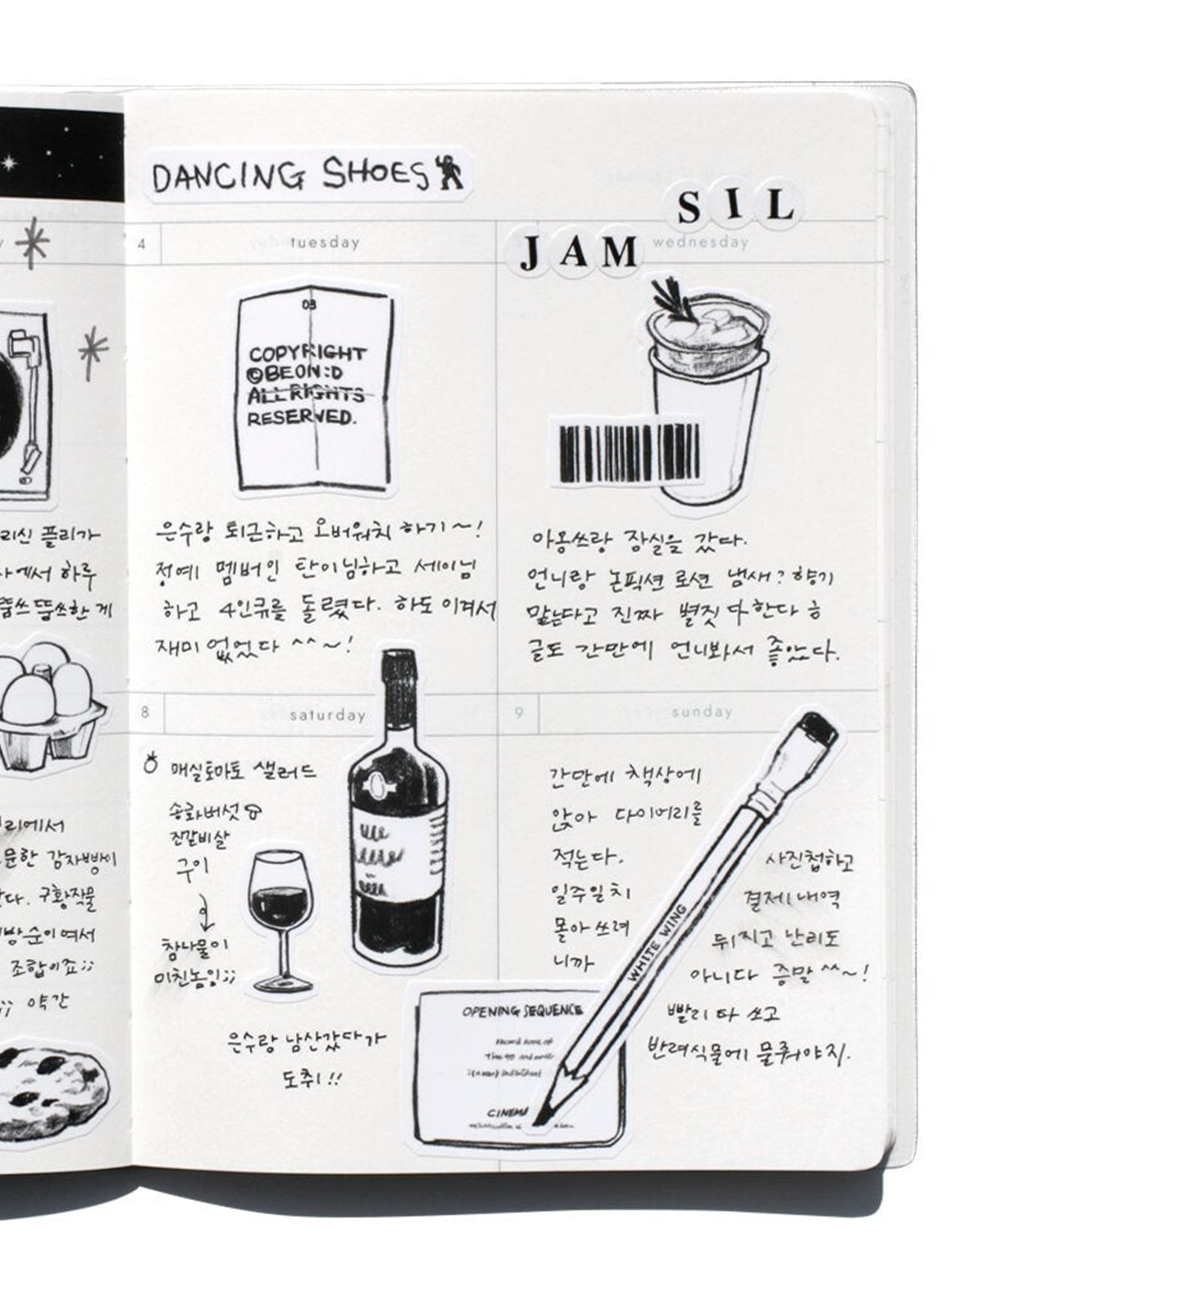 DANCING SHOES
SIL
JAM
4 tuesday
wednesday
03
COPYRIGHT
©BEON:D
ALL RIGHTS
RESERVED.
리신 플리가
에서 하루
뜹쓰한 게
은수랑 퇴근하고 오버워치 하기~!
정예 멤버인 탄이님하고 세이님
하고 4인큐를 돌렸다. 하도 이겨서
재미 없었다 ^^~!
아몽쓰랑 잠실을 갔다.
언니랑 논픽션 로션 냄새? 향기
맡는다고 진짜 별짓 다한다 ㅎ
글도 간만에 언니봐서 좋았다.
8 saturday
9 sunday
매실토마토 샐러드
송화버섯
진갈비살
구이
↓
참나물이
미친놈임;;
은수랑 남산갔다가
도취!!
리에서
문한 감자빵이
다. 구황작물
방순이여서
조합이죠;;
;; 약간
간만에 책상에
앉아 다이어리를
적는다.
일주일치
몰아 쓰려
니까
사진첩하고
결제내역
뒤지고 난리도
아니다 증말 ^^~!
빨리 다 쓰고
반려식물에 물줘야지.
WHITE WING
OPENING SEQUENCE
CINEMA